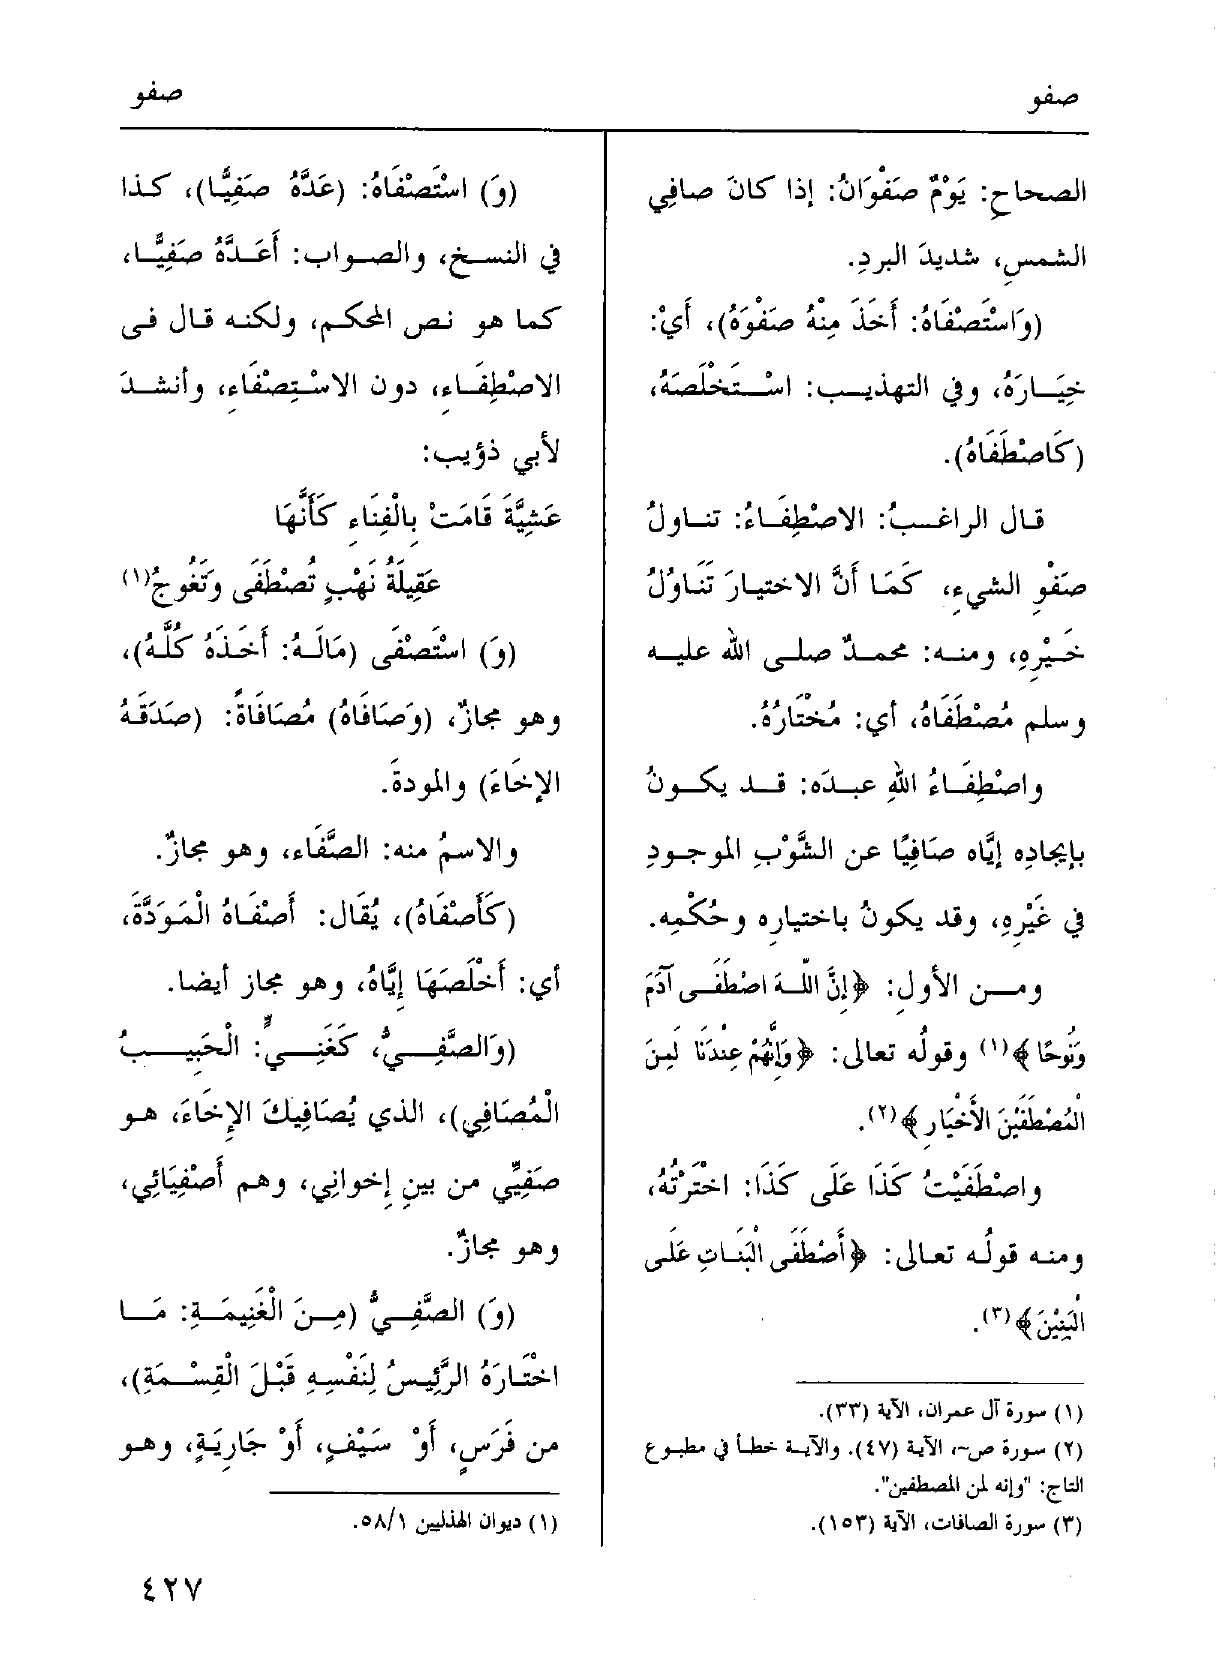 صفو
صفو
الصحاحِ: يَوْمٌ صَفْوَانُ: إذا كانَ صافِي
الشمسِ، شديدَ البردِ.
(وَاسْتَصْفَاهُ: أَخَذَ مِنْهُ صَفْوَهُ)، أَيْ:
خِيَارَهُ، وفي التهذيب: اسْتَخْلَصَهُ،
(كَاصْطَفَاهُ).
قال الراغبُ: الاصْطِفَاءُ: تناولُ
صَفْوِ الشيءِ، كَمَا أَنَّ الاختيارَ تَنَاوُلُ
خَيْرِهِ، ومنه: محمدٌ صلى الله عليه
وسلم مُصْطَفَاهُ، أي: مُخْتَارُهُ.
واصْطِفَاءُ اللهِ عبدَه: قد يكونُ
بإيجادِه إيَّاه صَافِيًا عن الشَّوْبِ الموجودِ
في غَيْرِهِ، وقد يكونُ باختيارِه وحُكْمِه.
ومن الأول: ﴿إِنَّ اللّهَ اصْطَفَى آدَمَ
وَنُوحًا﴾(١) وقولُه تعالى: ﴿وَإِنَّهُمْ عِنْدَنَا لَمِنَ
الْمُصْطَفَيْنَ الأَخْيَارِ﴾(٢).
واصْطَفَيْتُ كَذَا عَلَى كَذَا: اخْتَرْتُهُ،
ومنه قولُه تعالى: ﴿أَصْطَفَى الْبَنَاتِ عَلَى
الْبَنِيْنَ﴾(٣).
(١) سورة آل عمران، الآية (٣٣).
(٢) سورة ص~، الآية (٤٧). والآية خطأ في مطبوع
التاج: "وإنه لمن المصطفين".
(٣) سورة الصافات، الآية (١٥٣).
(وَ) اسْتَصْفَاهُ: (عَدَّهُ صَفِيًّا)، كذا
في النسخ، والصواب: أَعَدَّهُ صَفِيًّا،
كما هو نص المحكم، ولكنه قال فى
الاصْطِفَاءِ، دون الاسْتِصْفَاءِ، وأنشدَ
لأبي ذؤيب:
عَشِيَّةَ قَامَتْ بِالْفِنَاءِ كَأَنَّهَا
عَقِيلَةُ نَهْبٍ تُصْطَفَى وَتَغُوجُ(١)
(وَ) اسْتَصْفَى (مَالَهُ: أَخَذَهُ كُلَّهُ)،
وهو مجازٌ، (وَصَافَاهُ) مُصَافَاةً: (صَدَقَهُ
الإِخَاءَ) والمودةَ.
والاسمُ منه: الصَّفَاء، وهو مجازٌ.
(كَأَصْفَاهُ)، يُقَال: أَصْفَاهُ الْمَوَدَّةَ،
أي: أَخْلَصَهَا إِيَّاهُ، وهو مجاز أيضا.
(وَالصَّفِيُّ، كَغَنِيٍّ: الْحَبِيبُ
الْمُصَافِي)، الذي يُصَافِيكَ الإِخَاءَ، هو
صَفِيِّي من بينِ إخواني، وهم أَصْفِيَائِي،
وهو مجازٌ.
(وَ) الصَّفِيُّ (مِنَ الْغَنِيمَةِ: مَا
اخْتَارَهُ الرَّئِيسُ لِنَفْسِهِ قَبْلَ الْقِسْمَةِ)،
من فَرَسٍ، أَوْ سَيْفٍ، أَوْ جَارِيَةٍ، وهو
(١) ديوان الهذليين ٥٨/١.
٤٢٧